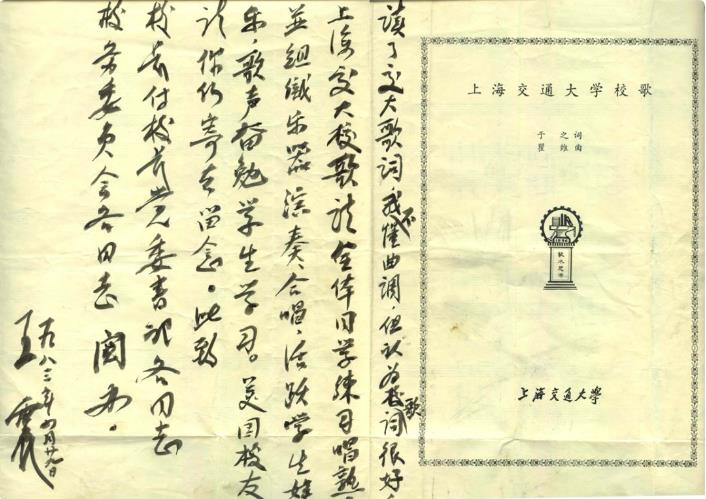 上海交通大学校歌
于之词
瞿维曲
饮水思源
上海交通大学
读了交大歌词,我不懂曲调,但认为校歌词很好
上海交大校歌请全体同学练习唱熟
並組織乐器演奏、合唱,活跃学生娱
乐,歌声奋勉学生学习。美国校友
请你们寄去留念。此致
校长付校长党委书记各同志
校务委员会各同志 阅办。
王
一九八三年四月廿日